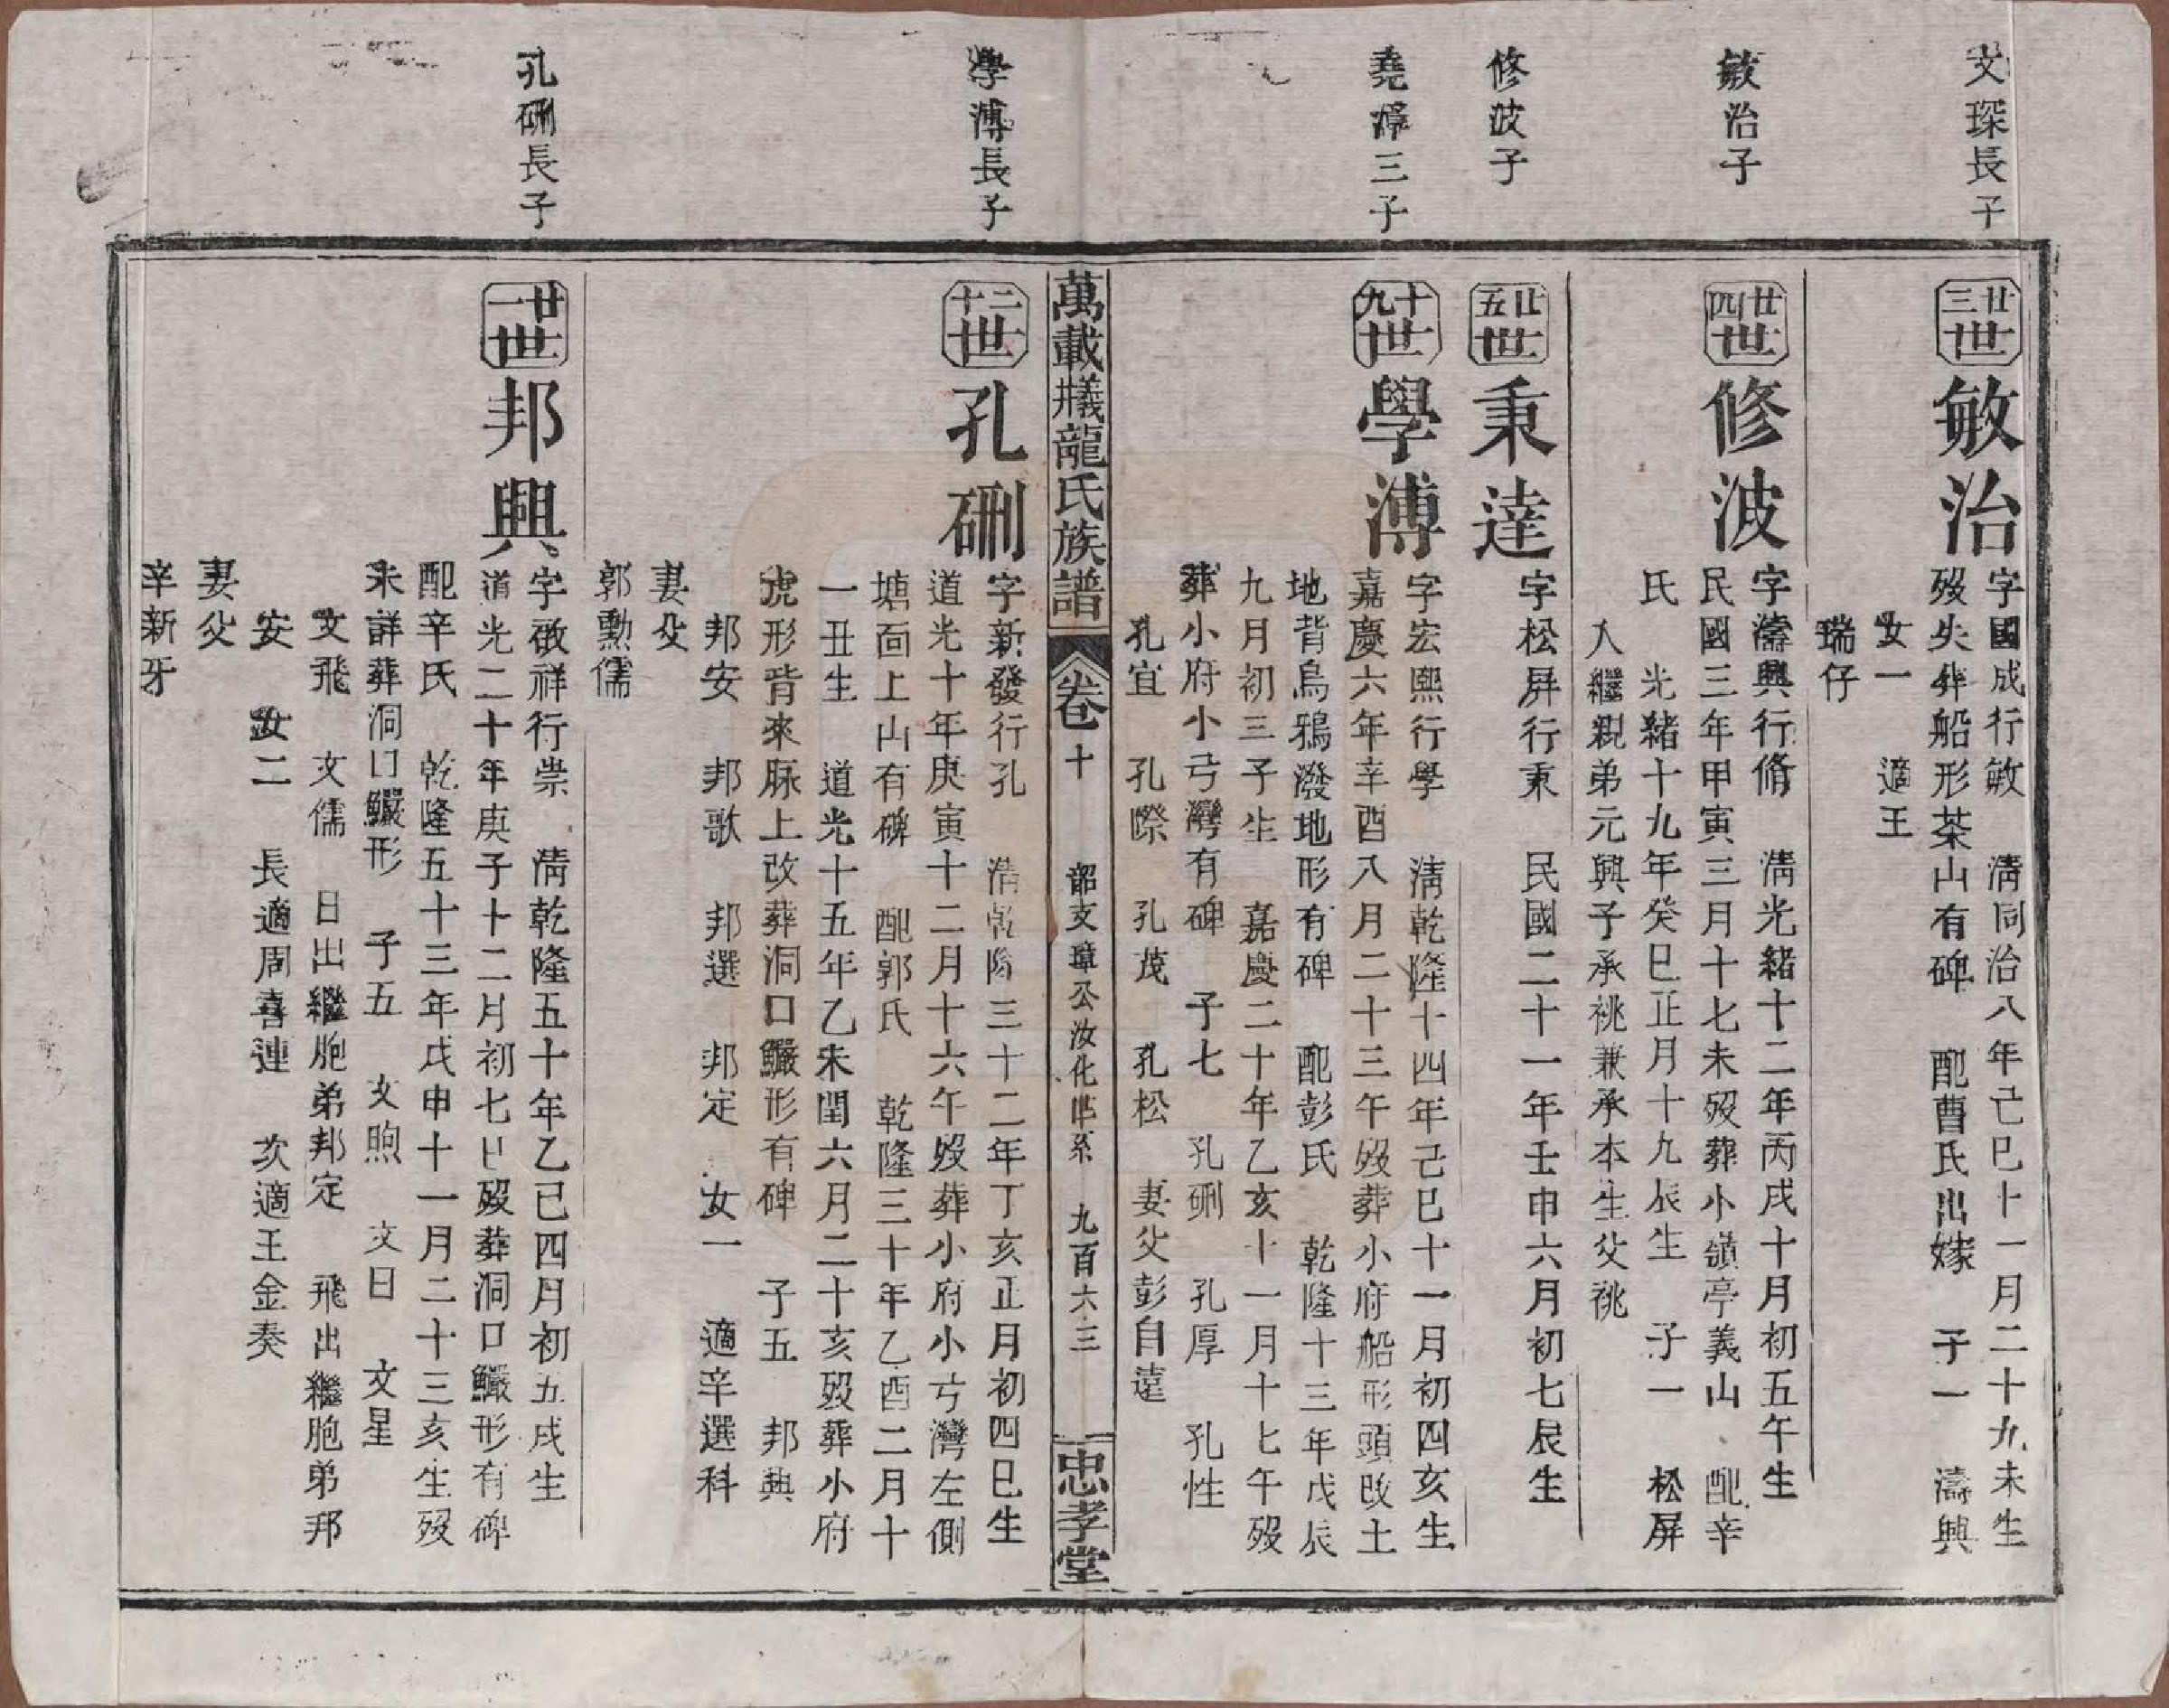 文琛長子
廿三世
敏治
字國成行敏　淸同治八年己巳十一月二十九未生
歿失葬船形茶山有碑　配曹氏出嫁　子一　濤興
女一　適王
瑞仔
敏治子
廿四世
修波
字濤興行脩　淸光緒十二年丙戌十月初五午生
民國三年甲寅三月十七未歿葬小嶺亭義山　配辛
氏　光緒十九年癸巳正月十九辰生　子一　松屏
入繼親弟元興子承祧兼承本生父祧
修波子
廿五世
秉達
字松屏行秉　民國二十一年壬申六月初七辰生
堯 三子
十九世
學溥
字宏熙行學　淸乾隆十四年己巳十一月初四亥生
嘉慶六年辛酉八月二十三午歿葬小府船形頭改土
地背烏鴉潑地形有碑　配彭氏　乾隆十三年戊辰
九月初三子生　嘉慶二十年乙亥十一月十七午歿
葬小府小弓灣有碑　子七　孔硎　孔厚　孔性
孔宜　孔際　孔茂　孔松　妻父彭自遠
萬載㙙龍氏族譜
卷十
韶支璋公汝化世系　九百六三
忠孝堂
學溥長子
二十世
孔硎
字新發行孔　淸乾隆三十二年丁亥正月初四巳生
道光十年庚寅十二月十六午歿葬小府小弓灣左側
塘面上山有碑　配郭氏　乾隆三十年乙酉二月十
一丑生　道光十五年乙未閏六月二十亥歿葬小府
虎形背來脉上改葬洞口鱖形有碑　子五　邦興
邦安　邦歌　邦選　邦定　女一　適辛選科
妻父
郭勳儒
孔硎長子
廿一世
邦興
字啟祥行崇　淸乾隆五十年乙巳四月初五戌生
道光二十年庚子十二月初七巳歿葬洞口鱖形有碑
配辛氏　乾隆五十三年戊申十一月二十三亥生歿
未詳葬洞口鱖形　子五　文煦　文日　文星
文飛　文儒　日出繼胞弟邦定　飛出繼胞弟邦
安　女二　長適周喜連　次適王金奏
妻父
辛新牙